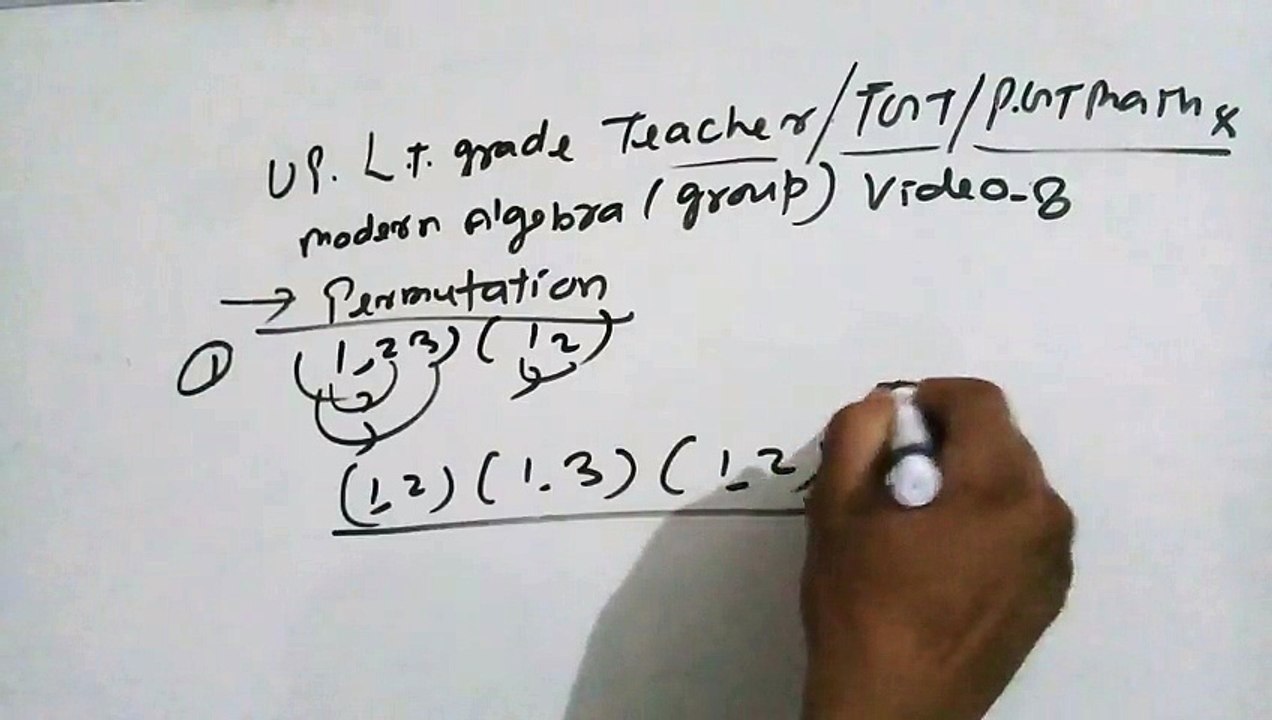 UP. L.T. grade Teacher/TGT/P.GT Maths
modern Algebra (group) Video-8
→ Permutation
① (1 2 3) (1 2)
(1 2) (1 3) (1 2)